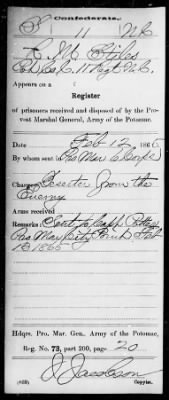 Confederate.
S 11 N.C.
Stiles
Appears on a
Register
of prisoners received and disposed of by the Pro-
vost Marshal General, Army of the Potomac.
Date Feb 12, 1865
By whom sent Pro Mar 6 Corps
Charges Deserter from the
Enemy
Arms received
Remarks Sent to Capt Potter
Pro Mar City Point Feb
13 1865
Hdqrs. Pro. Mar. Gen., Army of the Potomac,
Reg. No. 73, part 200, page 20
J. Jacobson
Copyist.